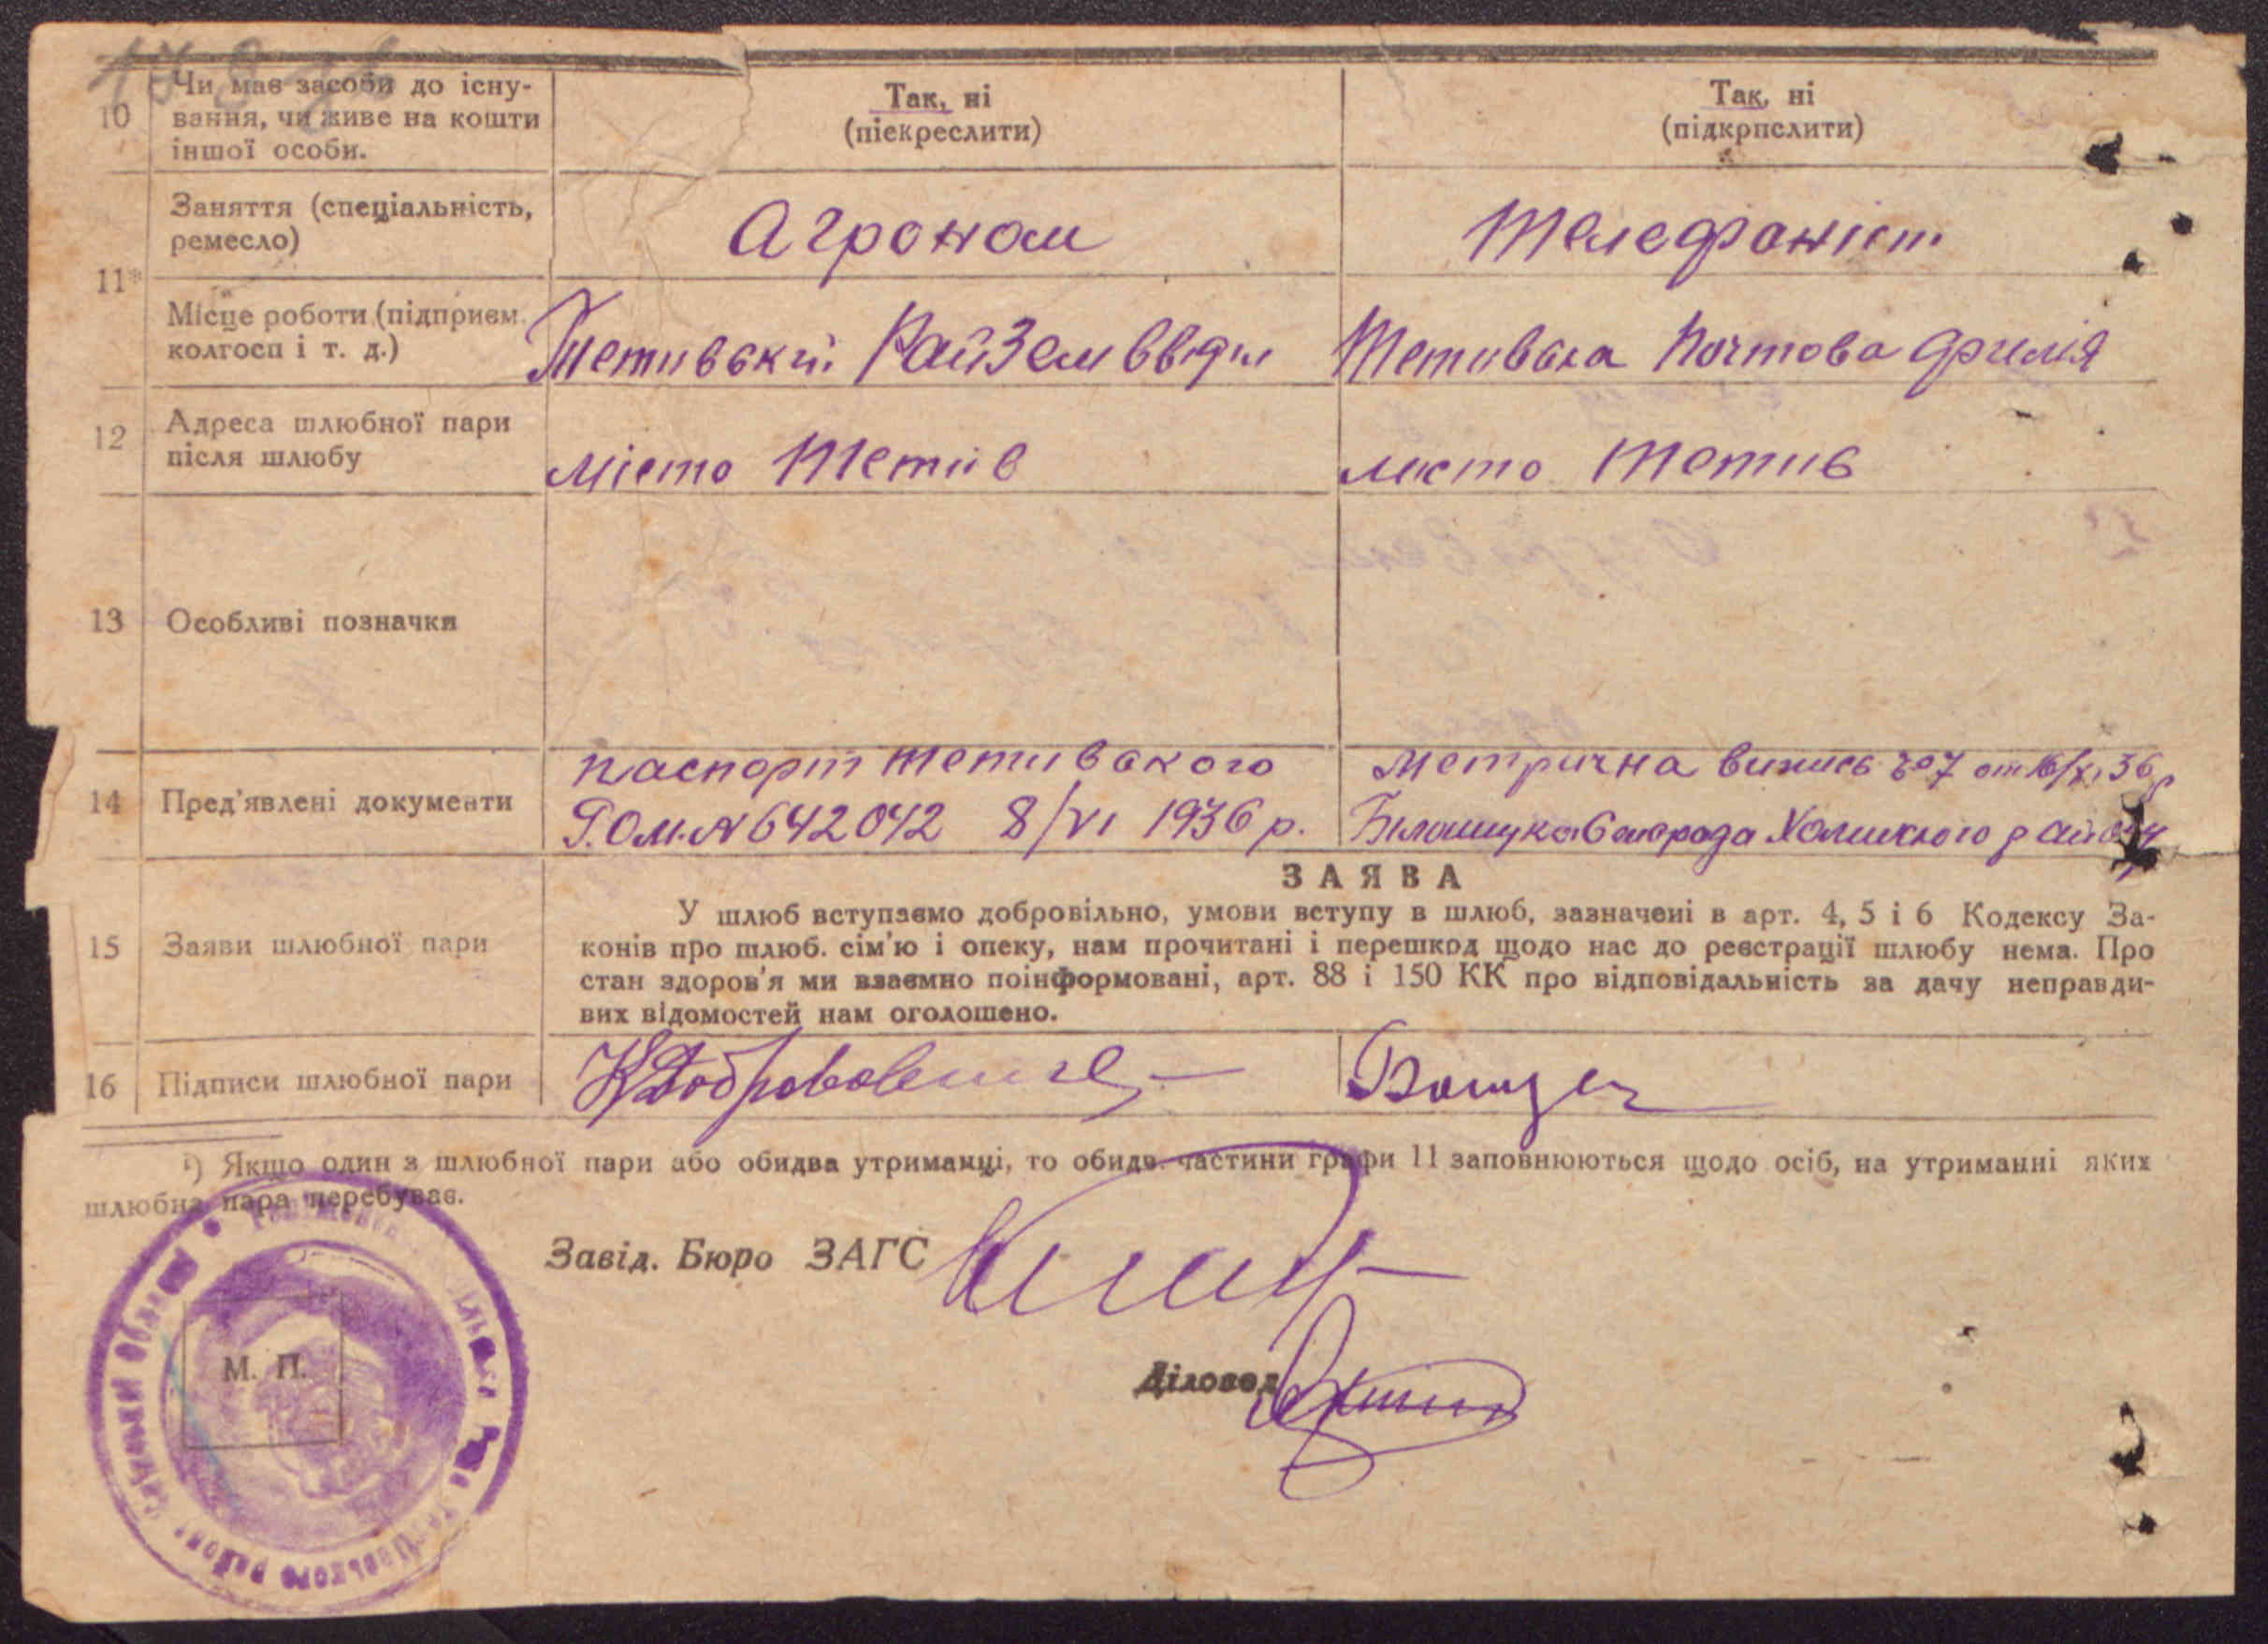 10 Чи має засоби до існу-
вання, чи живе на кошти
іншої особи.
Так, ні
(піекреслити)
Так, ні
(підкрпслити)
11* Заняття (спеціальність,
ремесло)
Агроном
Телефоніст
Місце роботи (підприєм.
колгосп і т. д.)
Тетивский РайЗемВвіділ
Тетивська Почтова Филія
12 Адреса шлюбної пари
після шлюбу
місто Тетиїв
місто Тетиів
13 Особливі позначки
14 Пред'явлені документи
паспорт Тетивського
Р.О.М. № 642042 8/VI 1936 р.
Метрична випись 307 от 16/XI 36 р
сельрада району
ЗАЯВА
15 Заяви шлюбної пари
У шлюб вступаємо добровільно, умови вступу в шлюб, зазначені в арт. 4, 5 і 6 Кодексу За-
конів про шлюб. сім'ю і опеку, нам прочитані і перешкод щодо нас до реєстрації шлюбу нема. Про
стан здоров'я ми взаємно поінформовані, арт. 88 і 150 КК про відповідальність за дачу неправди-
вих відомостей нам оголошено.
16 Підписи шлюбної пари
¹) Якщо один з шлюбної пари або обидва утриманці, то обидв. частини графи 11 заповнюються щодо осіб, на утриманні яких
шлюбна пара перебуває.
Завід. Бюро ЗАГС
М. П.
Діловод